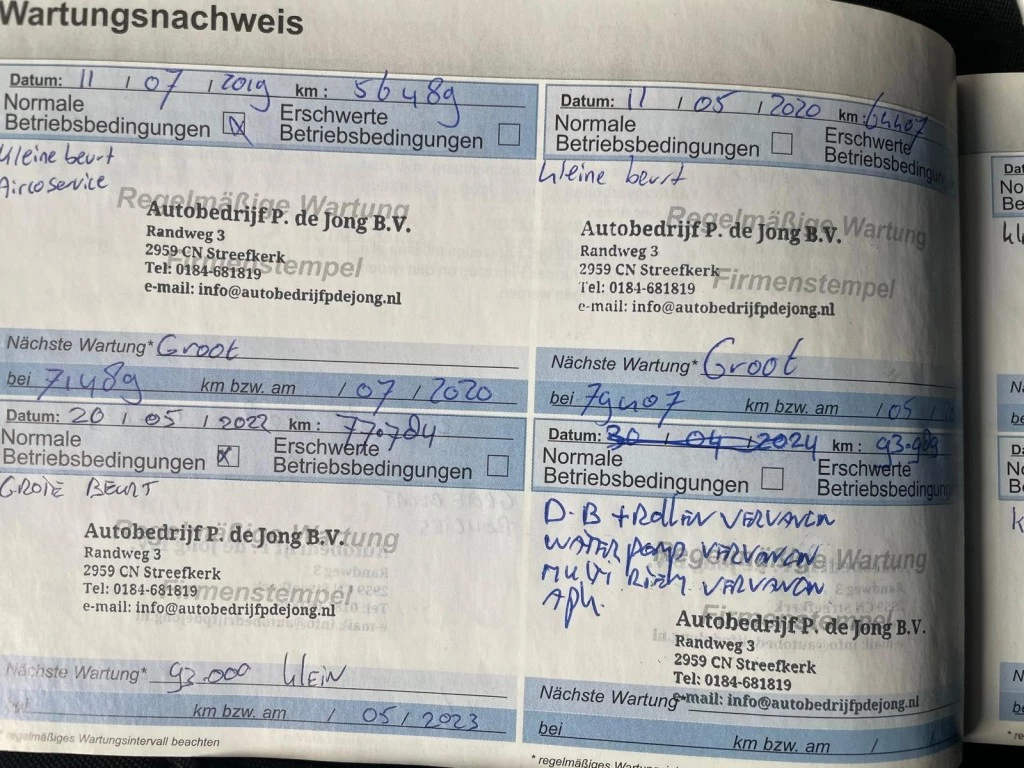 Wartungsnachweis
Datum: 11 / 07 / 2019 km : 56489
Normale
Betriebsbedingungen
Erschwerte
Betriebsbedingungen
kleine beurt
Aircoservice
Regelmäßige Wartung
Firmenstempel
Autobedrijf P. de Jong B.V.
Randweg 3
2959 CN Streefkerk
Tel: 0184-681819
e-mail: info@autobedrijfpdejong.nl
Nächste Wartung* Groot
bei 71489 km bzw. am / 07 / 2020
Datum: 11 / 05 / 2020 km : 64407
Normale
Betriebsbedingungen
Erschwerte
Betriebsbedingung
kleine beurt
Regelmäßige Wartung
Firmenstempel
Autobedrijf P. de Jong B.V.
Randweg 3
2959 CN Streefkerk
Tel: 0184-681819
e-mail: info@autobedrijfpdejong.nl
Nächste Wartung* Groot
bei 79407 km bzw. am / 05 /
Datum: 20 / 05 / 2022 km : 77.784
Normale
Betriebsbedingungen
Erschwerte
Betriebsbedingungen
GROTE BEURT
Firmenstempel
Autobedrijf P. de Jong B.V.
Randweg 3
2959 CN Streefkerk
Tel: 0184-681819
e-mail: info@autobedrijfpdejong.nl
Nächste Wartung* 93.000 KlEiN
km bzw. am / 05 / 2023
* regelmäßiges Wartungsintervall beachten
Datum: 30 / 04 / 2024 km : 93.989
Normale
Betriebsbedingungen
Erschwerte
Betriebsbedingung
D.B + ROLLEN VERVANGEN
WATERPOMP VERVANGEN
MULTI RIEM VERVANGEN
APK.
Regelmäßige Wartung
Firmenstempel
Autobedrijf P. de Jong B.V.
Randweg 3
2959 CN Streefkerk
Tel: 0184-681819
e-mail: info@autobedrijfpdejong.nl
Nächste Wartung*
bei km bzw. am / /
* regelmäßiges